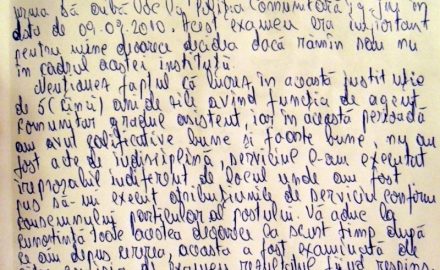 urma să aibă loc la Poliția Comunitară Iași în
data de 09.09.2010. Acest examen era important
pentru mine deoarece decidea dacă rămîn sau nu
în cadrul acestei instituții.
Menționez faptul că lucrez în această instituție
de 5 (cinci) ani de zile avînd funcția de agent
comunitar gradul asistent, iar în această perioadă
am avut calificative bune și foarte bune, nu au
fost acte de indisciplină, serviciul l-am executat
ireproșabil indiferent de locul unde am fost
pus să-mi execut atribuțiunile de serviciu conform
consemnului particular al postului. Vă aduc la
cunoștință toate acestea deoarece la scurt timp după
ce am depus cererea, aceasta a fost examinată de
de examen rezultatul fiind respins